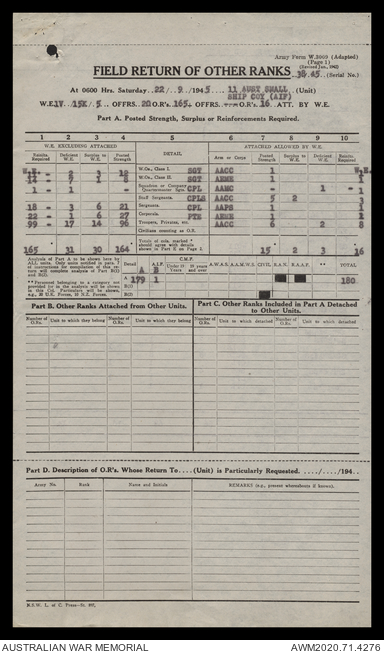 Army Form W.3009 (Adapted)
(Page 1)
(Revised Jan., 1942)
FIELD RETURN OF OTHER RANKS 38.45 (Serial No.)
At 0600 Hrs. Saturday 22/ 9 /1945. 11 AUST SMALL SHIP COY (AIF) (Unit)
W.E. IV /15K/ 5 . OFFRS. 20 O.R's. 165. OFFRS. O.R's. 16 ATT. BY W.E.
Part A. Posted Strength, Surplus or Reinforcements Required.
1 2 3 4 5 6 7 8 9 10
W.E. EXCLUDING ATTACHED DETAIL ATTACHED ALLOWED BY W.E.
Reinfts. Required Deficient W.E. Surplus to W.E. Posted Strength Arms or Corps Posted Strength Surplus to W.E. Deficient W.E. Reinfts. Required
W.Os., Class I. SGT AACC 1
W.Os., Class II. SGT AEME 1
1 - 1 Squadron or Company Quartermaster Sgt. CPL AAMC - 1
Staff Sergeants. CPLS AACC 5 2
18 - 3 6 21 Sergeants. CPL AAPS 1
22 - 1 6 27 Corporals. PTE AEME 1
99 - 17 14 96 Troopers, Privates, etc. AACC 6 2 8
Civilians counting as O.R.
165 31 30 164 Totals of cols. marked * should agree with details shown in Part E on Page 2. 15 2 3 16
Analysis of Part A to be shown by ALL units. Only units notified in para. 7 of instructions for compilation of this return will complete analysis of Part B(i) and B(ii).
Detail A.I.F. C.M.F. Under 19 Years 19 years and over A.W.A.S. A.A.M.W.S. CIVIL. R.A.N. R.A.A.F. ** TOTAL
A B
A 179 1 180
B(i)
B(ii)
Part B. Other Ranks Attached from Other Units.
Part C. Other Ranks Included in Part A Detached to Other Units.
Number of O.Rs. Unit to which they belong Number of O.Rs. Unit to which they belong Number of O.Rs. Unit to which detached Number of O.Rs. Unit to which detached
Part D. Description of O.R's. Whose Return To....(Unit) is Particularly Requested. ..../..../194..
Army No. Rank Name and Initials REMARKS (e.g., present whereabouts if known).
AUSTRALIAN WAR MEMORIAL AWM2020.71.4276